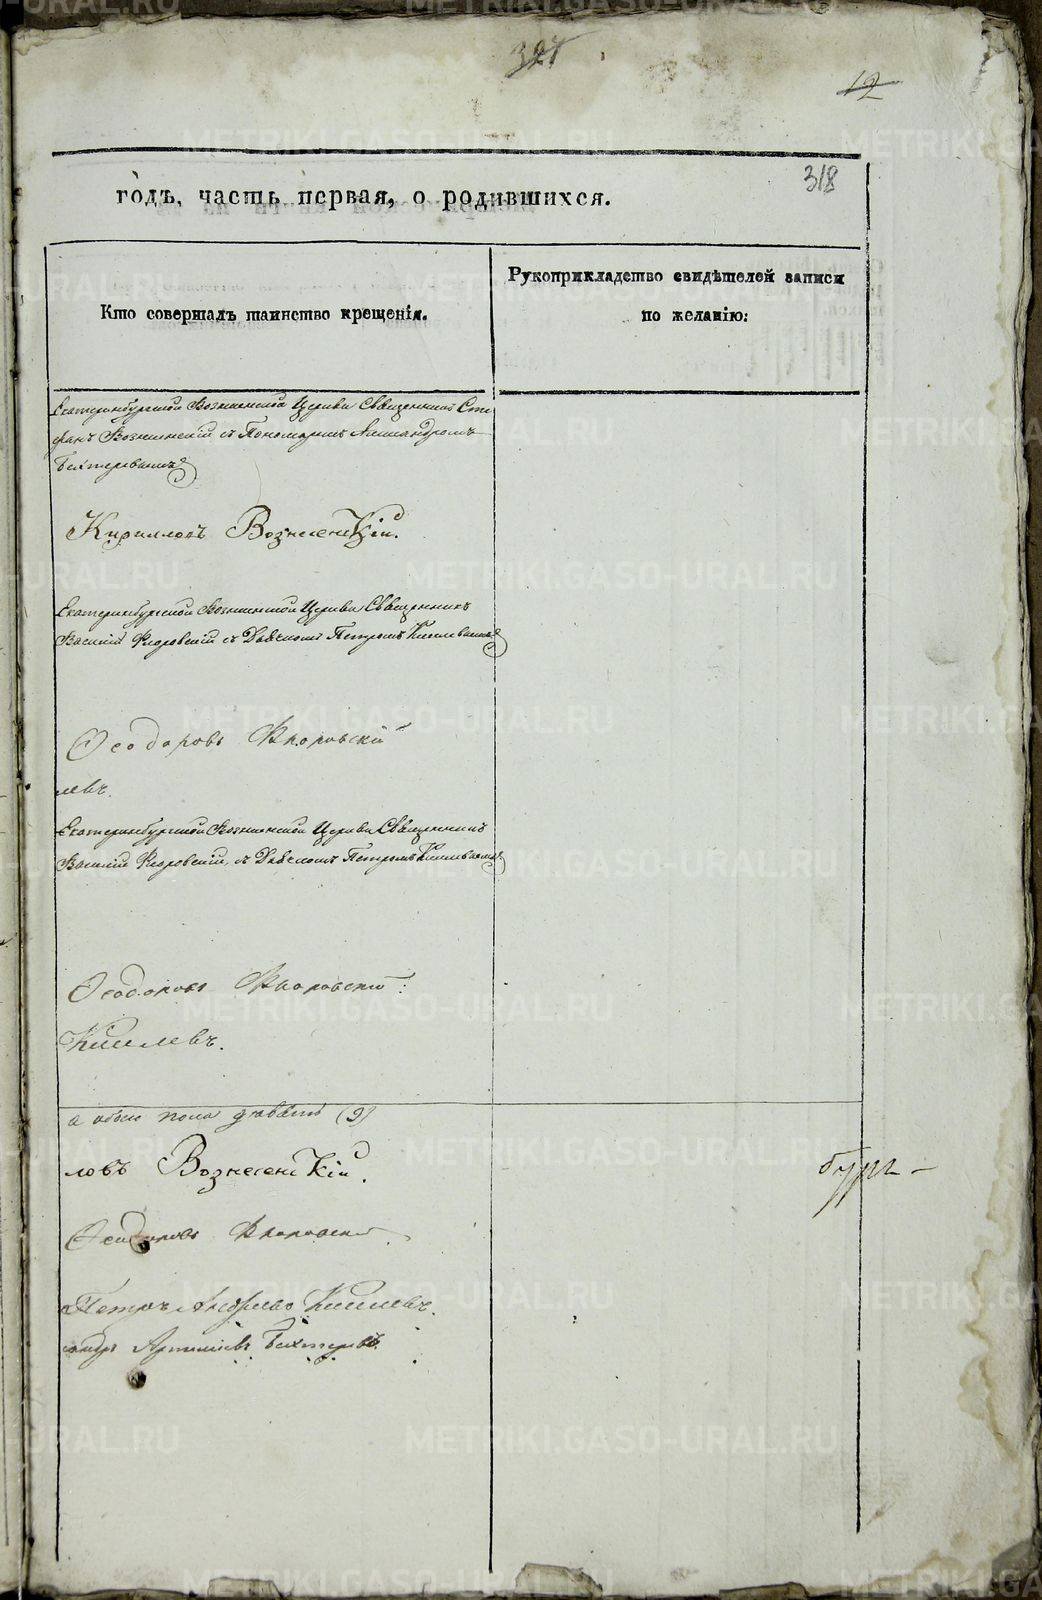 327
12
318
годъ, часть первая, о родившихся.
Кто совершалъ таинство крещенія.
Рукоприкладство свидѣтелей записи
по желанію:
Екатеринбургской Вознесенской Церкви Священникъ Сте
фанъ Вознесенскій съ Пономаремъ Александромъ
Бехтеревымъ
Кирилловъ Вознесенскій.
Екатеринбургской Вознесенской Церкви Священникъ
Василій Флоровскій съ Діакономъ Петромъ Киселевымъ
Ѳеодоровъ Флоровскій
левъ.
Екатеринбургской Вознесенской Церкви Священникъ
Василій Флоровскій, съ Діакономъ Петромъ Киселевымъ
Ѳеодоровъ Флоровскій.
Киселевъ.
а обоего пола девять (9)
ловъ Вознесенскій.
Ѳеодоровъ Флоровскій
Петръ Андреевъ Киселевъ.
сандръ Бехтеревъ
бург-
METRIKI.GASO-URAL.RU